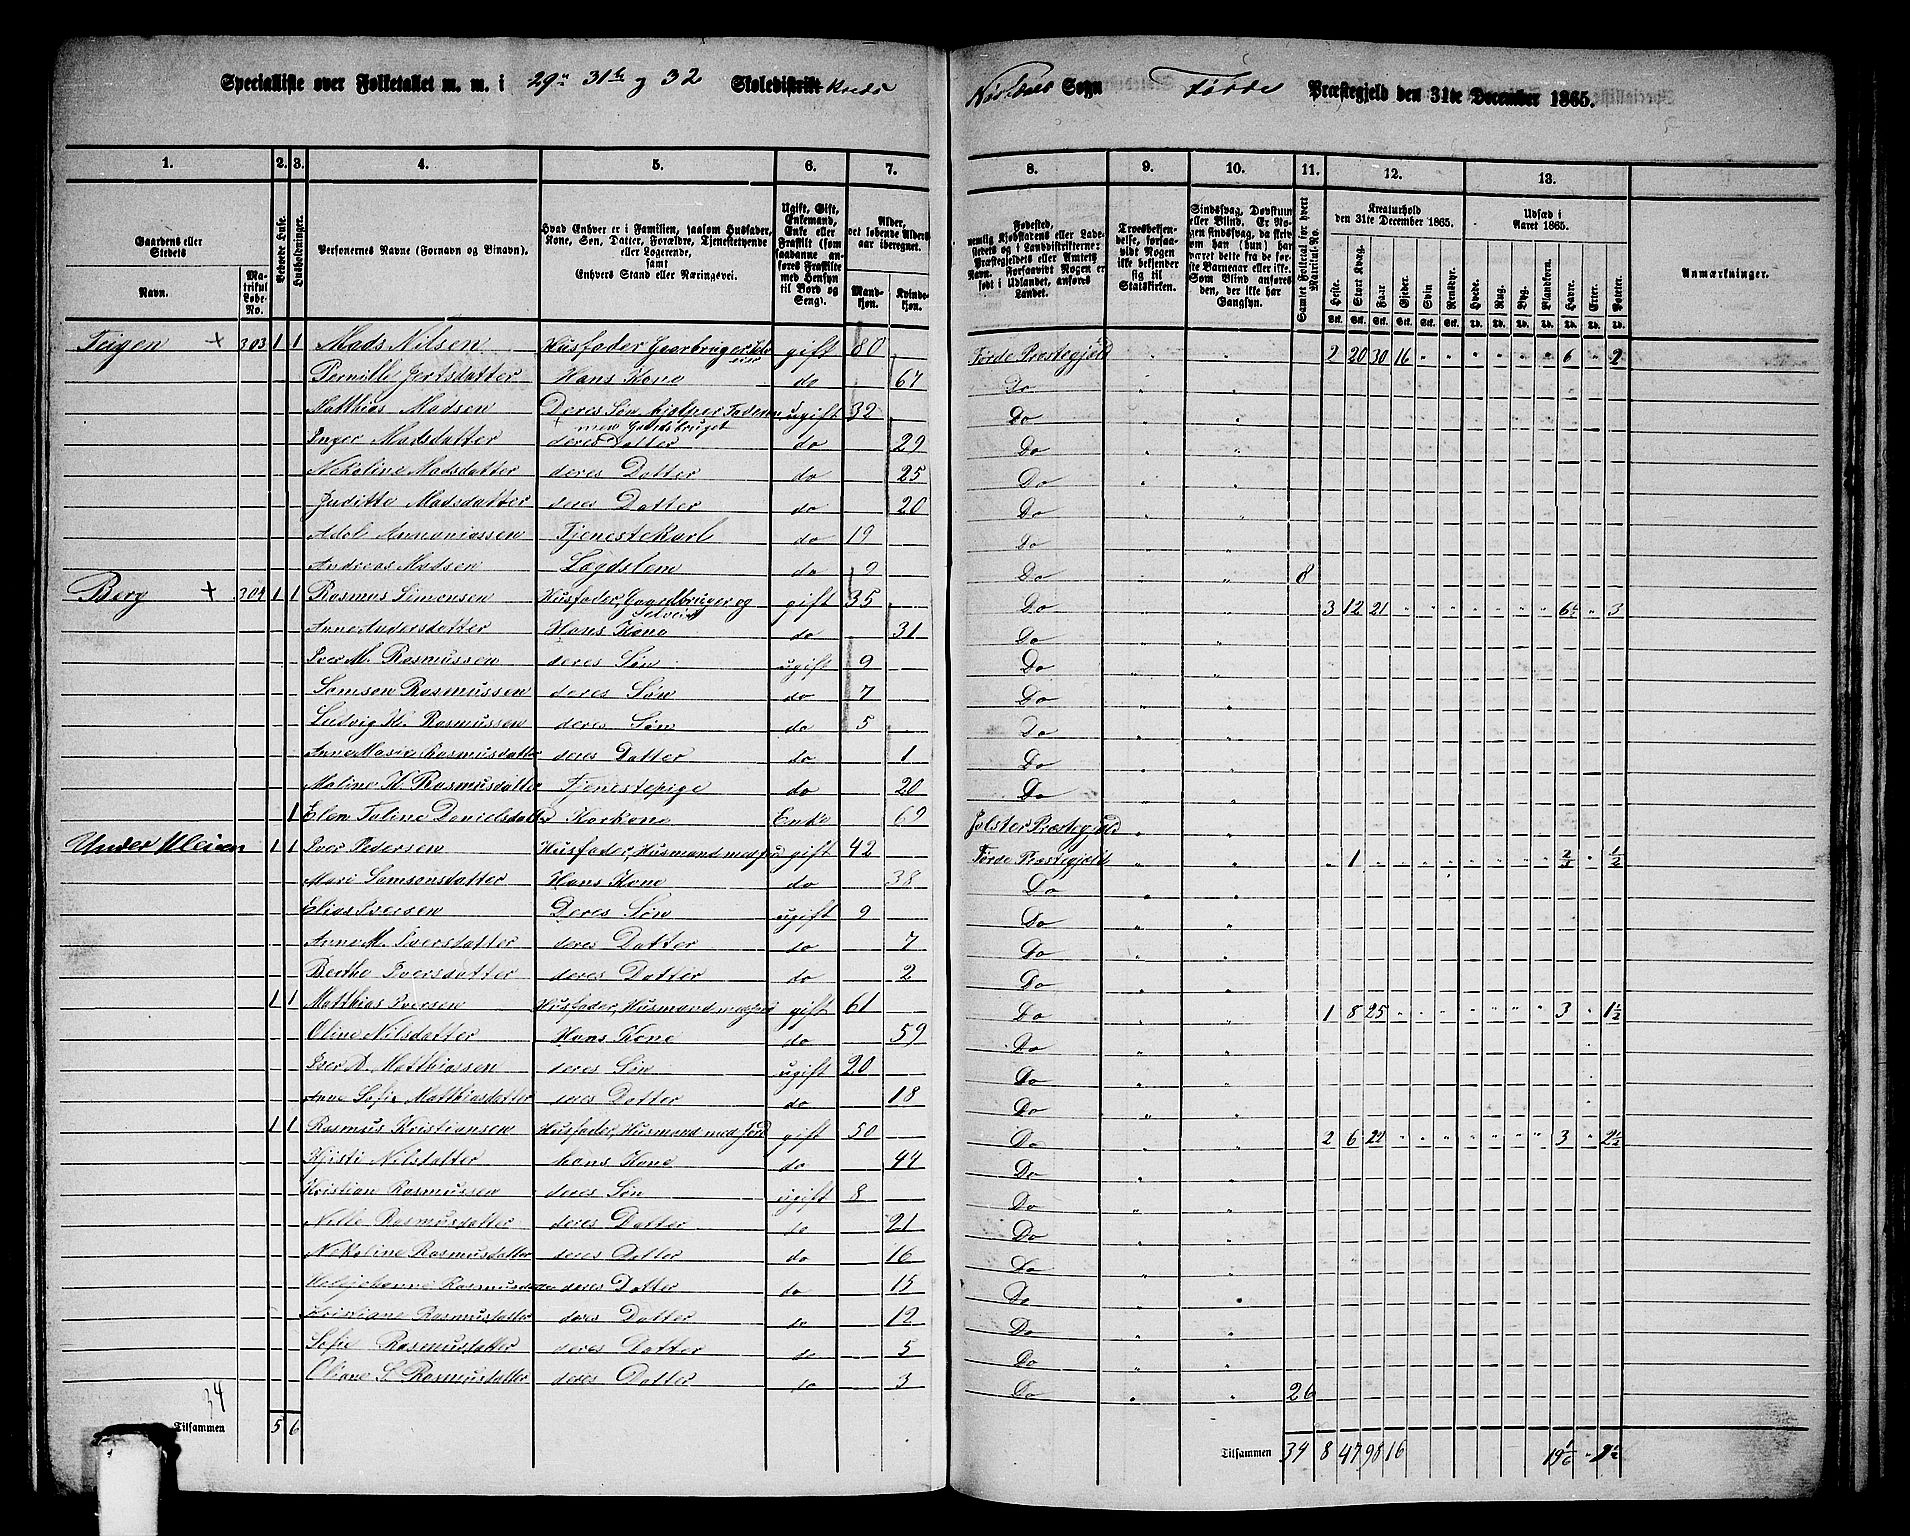 Specialliste over Folketallet m. m. i 29de 31te og 32 Skoledistrikt Kreds Sogn Førde Præstegjeld den 31te December 1865.
1. 2. 3. 4. 5. 6. 7. 8. 9. 10. 11. 12. 13.
Gaardens eller Stedets Navn. Matrikul Løbe-No. Beboede Huse. Husholdninger. Personernes Navne (Fornavn og Binavn).
Hvad Enhver er i Familien, saasom Husfader, Kone, Søn, Datter, Forældre, Tjenestetyende eller Logerende, samt Enhvers Stand eller Næringsvei.
Ugift, Gift, Enkemand, Enke eller Fraskilt (som saadanne anføres Fraskilte med Hensyn til Bord og Seng).
Alder, det løbende Aldersaar iberegnet. Mandkjøn. Kvindekjøn.
Fødested, nemlig Kjøbstadens eller Ladestedets og i Landdistrikterne: Præstegjeldets eller Amtets Navn. Forsaavidt Nogen er født i Udlandet, anføres Landet.
Troesbekjendelse, forsaavidt Nogen ikke bekjender sig til Statskirken.
Sindssvag, Døvstum eller Blind. Er Nogen sindssvag, da skrives om han (hun) har været dette fra de første Barneaar eller ikke. Som Blind anføres den, der ikke har Gangsyn.
Samlet Folketal for hvert Matrikul-No.
Kreaturhold den 31te December 1865. Heste. Stort Kvæg. Faar. Gjeder. Svin. Rensdyr.
Udsæd i Aaret 1865. Hvede. Rug. Byg. Blandkorn. Havre. Erter. Poteter.
Anmærkninger.
Teigen + 303 1 1 Mads Nilsen Husfader Gaarbruger Selveier gift 80 Førde Præstegjeld 2 20 30 16 6 2
Pernille Gertsdatter Hans Kone do 67 Do
Matthias Madsen Deres Søn hjelper Faderen med Gaardsbruget ugift 32 Do
Inger Madsdatter deres Datter do 29 Do
Nikoline Madsdatter deres Datter do 25 Do
Juditte Madsdatter deres Datter do 20 Do
Adol Annaniassen Tjenestekarl do 19 Do
Andreas Madsen Lægdslem do 9 Do 8
Berg + 304 1 1 Rasmus Simonsen Husfader, Gaardbruger og Selveier gift 35 Do 3 12 21 3
Anne Andersdatter Hans Kone do 31 Do
Iver M. Rasmussen deres Søn ugift 9 Do
Samson Rasmussen deres Søn do 7 Do
Ludvig K. Rasmussen deres Søn do 5 Do
Anne Marie Rasmusdatter deres Datter do 1 Do
Maline K. Rasmusdatter Tjenestepige do 20 Do
1 Elen Taline Danielsdatter Karkone Enke 69 Jølster Præstegjeld
Under 1 1 Iver Pedersen Husfader, Husmand med Jord gift 42 Førde Præstegjeld 1 1/2
Mari Samsonsdatter Hans Kone do 38 Do
Elias Iversen Deres Søn ugift 9 Do
Anne M. Iversdatter deres Datter do 7 Do
Berthe Iversdatter deres Datter do 2 Do
1 1 Matthias Iversen Husfader, Husmand med Jord gift 61 Do 1 8 25 3 1 1/2
Oline Nilsdatter Hans Kone do 59 Do
Iver A. Matthiassen deres Søn ugift 20 Do
Anne Sofie Matthiasdatter deres Datter do 18 Do
1 1 Rasmus Kristiansen Husfader, Husmand med Jord gift 50 Do 2 6 22 3 2 1/2
Kjisti Nilsdatter hans Kone do 44 Do
Kristian Rasmussen deres Søn ugift 8 Do
Nille Rasmusdatter deres Datter do 21 Do
Nikoline Rasmusdatter deres Datter do 16 Do
Rasmusdatter deres Datter do 15 Do
Kristiane Rasmusdatter deres Datter do 12 Do
Sofie Rasmusdatter deres Datter do 5 Do
Oliane S. Rasmusdatter deres Datter do 3 Do 26
34
Tilsammen 5 6 Tilsammen 34 8 47 98 16